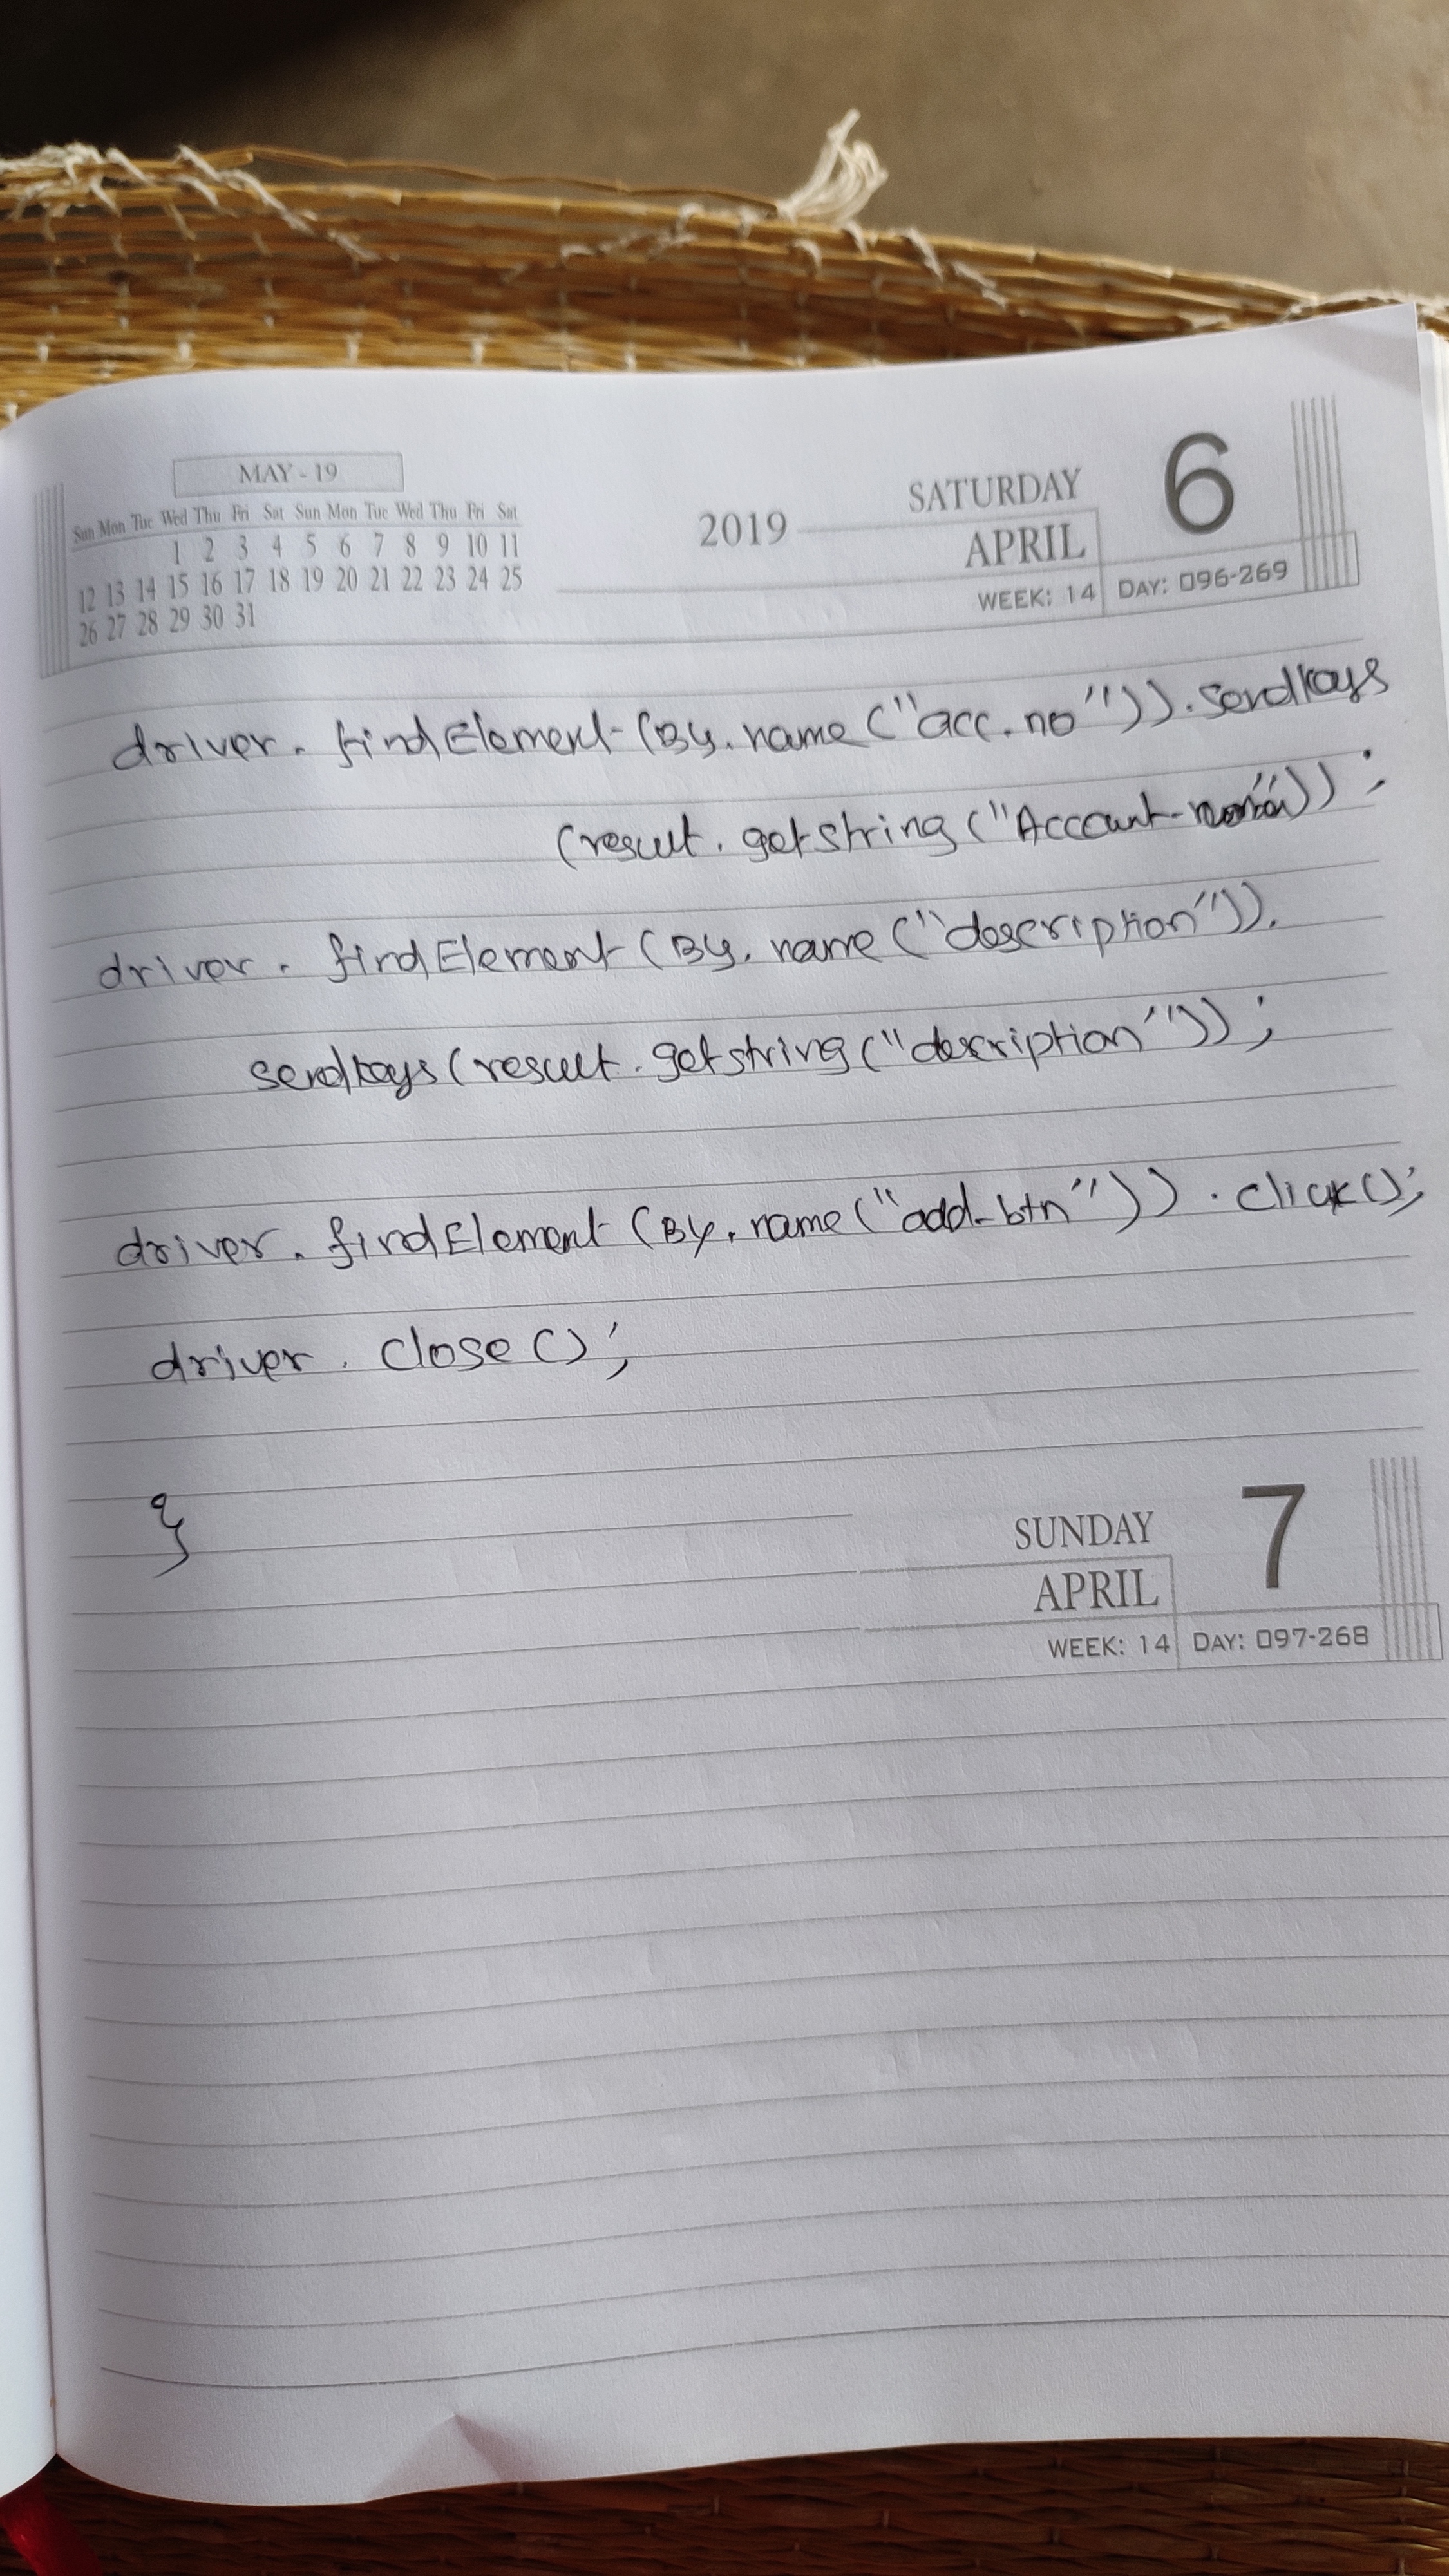 MAY - 19
Sun Mon Tue Wed Thu Fri Sat Sun Mon Tue Wed Thu Fri Sat
1 2 3 4 5 6 7 8 9 10 11
12 13 14 15 16 17 18 19 20 21 22 23 24 25
26 27 28 29 30 31
2019
SATURDAY
APRIL
6
WEEK: 14 DAY: 096-269
driver. findElement (By. name ("acc. no")). Sendkeys
(result. getstring ("Account-")) ;
driver. findElement (By. name ("description")).
sendkeys (result. getstring ("description")) ;
driver. findElement (By. name ("add-btn")) . click();
driver. close () ;
}
SUNDAY
APRIL
7
WEEK: 14 DAY: 097-268